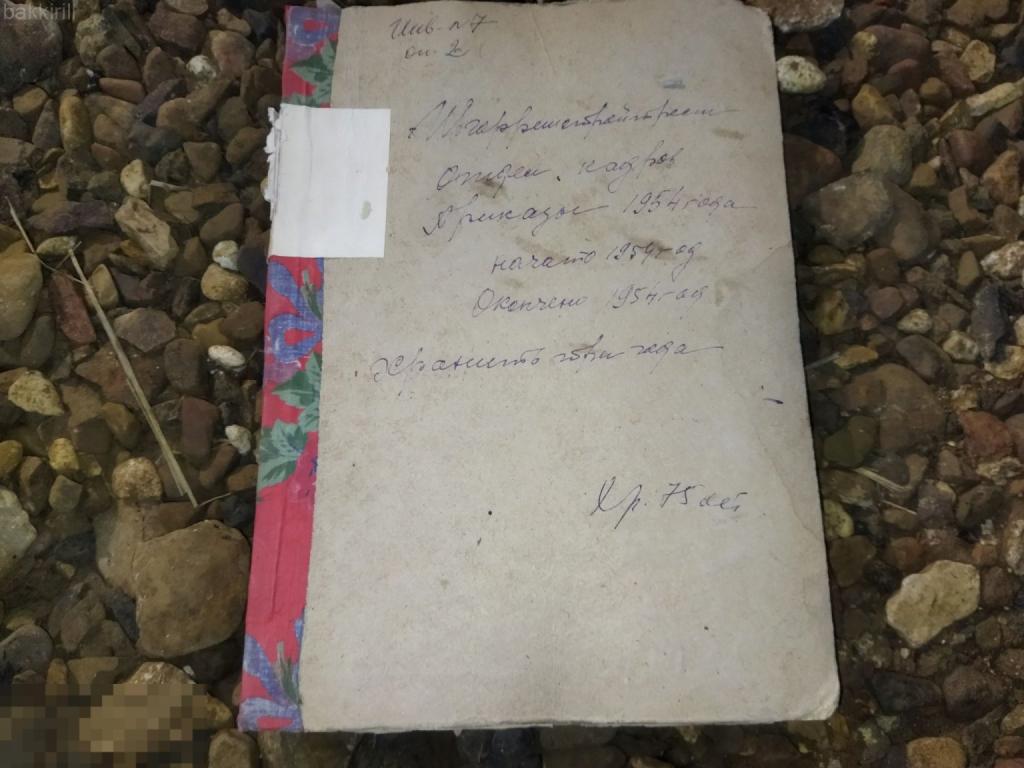 bakkirill
Инв. №7
оп. 2
отдел. кадров
Приказы 1954 года
начато 1954 год
Окончено 1954 год
хранить три года
Хр. 75 лет